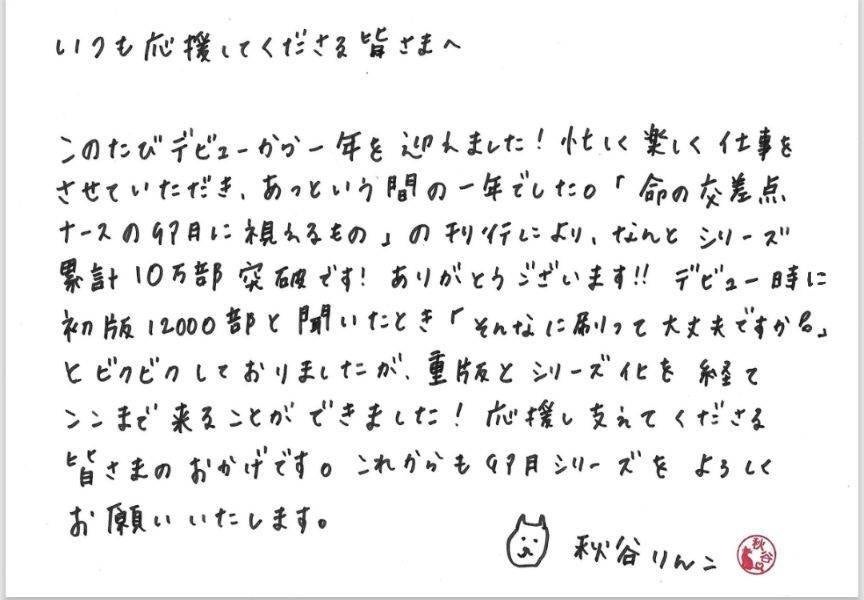 いつも応援してくださる皆さまへ
このたびデビューから一年を迎えました！忙しく楽しく仕事を
させていただき、あっという間の一年でした。「命の交差点
ナースの卯月に視えるもの」の刊行により、なんとシリーズ
累計10万部突破です！ありがとうございます!!デビュー時に
初版12000部と聞いたとき「そんなに刷って大丈夫ですか!?」
とビクビクしておりましたが、重版とシリーズ化を経て
ここまで来ることができました！応援し支えてくださる
皆さまのおかげです。これからも卯月シリーズをよろしく
お願いいたします。
秋谷りんこ
秋谷